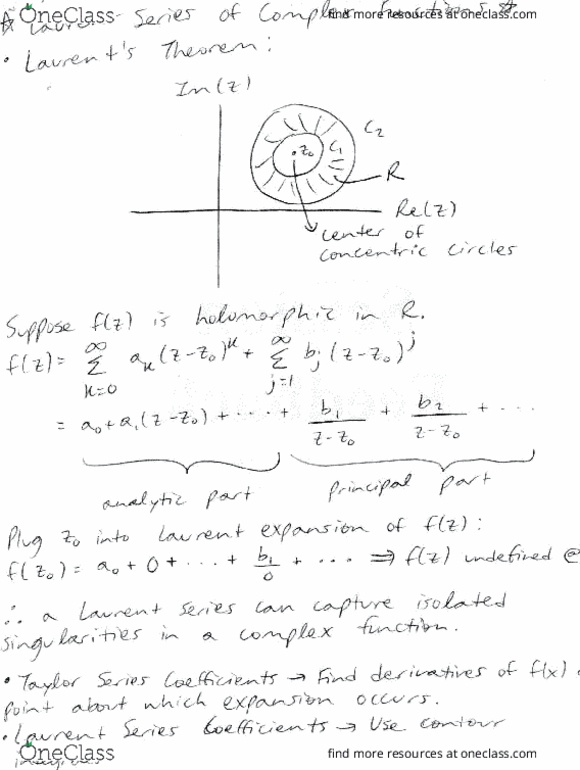 OneClass
find more resources at oneclass.com
Series of Complex Functions
• Laurent's Theorem:
Im(z)
C₂
z₀
C₁
R
Re(z)
center of
concentric circles
Suppose f(z) is holomorphic in R.
f(z) = ∞∑k=0 aₖ(z-z₀)ᵏ + ∞∑j=1 bⱼ(z-z₀)ʲ
= a₀+a₁(z-z₀) + ···· + b₁/(z-z₀) + b₂/(z-z₀) + ...
analytic part
principal part
Plug z₀ into Laurent expansion of f(z):
f(z₀) = a₀ + 0 + ··· + b₁/0 + ··· ⇒ f(z) undefined @
∴ a Laurent series can capture isolated
singularities in a complex function.
• Taylor Series Coefficients → Find derivatives of f(x)
point about which expansion occurs.
• Laurent Series Coefficients → Use contour
OneClass
find more resources at oneclass.com